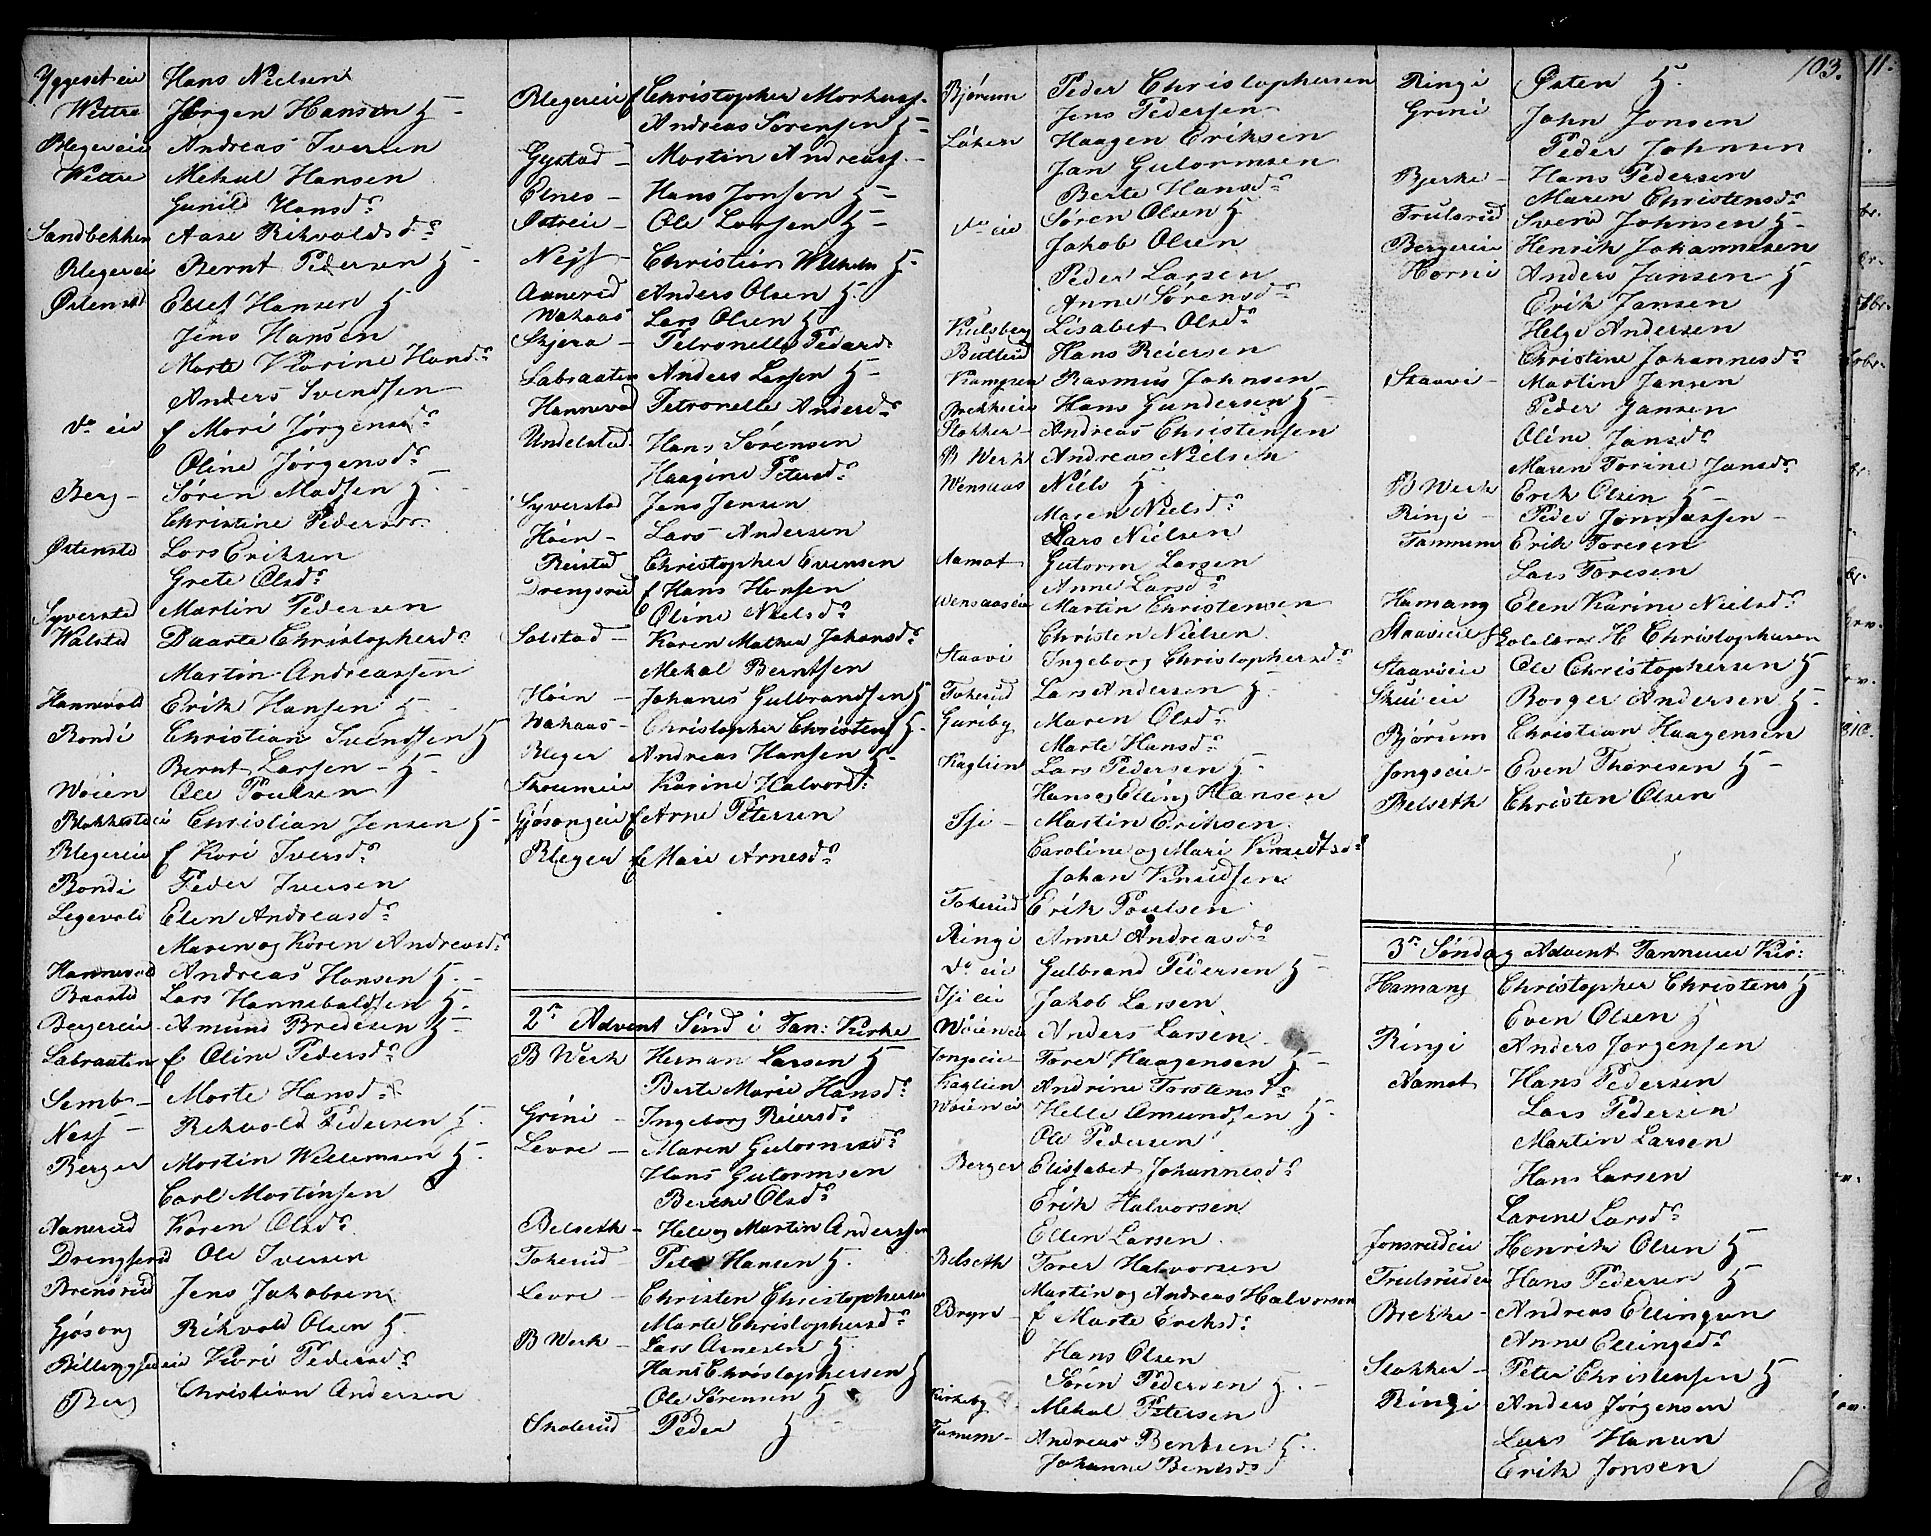 Yggeset eie Hans Nielsen
Wettre Jørgen Hansen H -
Blegereie Andreas Iversen
Wettre Mekal Hansen
Gunild Hansd.
Sandbekken Aase Rekvoldsd.
Blegereie Bernt Pedersen H -
Østensted Ellef Hansen H -
Jens Hansen
Marte Karine Hansd.
Anders Svendsen
do eie f Mari Jørgensd.
Oline Jørgensd.
Berg - Søren Madsen H -
Christine Pedersd.
Østensted Lars Eriksen
Grete Olsd.
Syversted Martin Pedersen
Walsted Daarte Christophersd.
Martin Andreassen
Hannevold Erik Hansen H -
Bondi Christian Svendsen H
Bernt Larsen - H -
Woien Ole Poulsen
Blakkesteie Christian Jensen H -
Blegereie f Kari Iversd.
Bondi Peder Iversen
Legevold Elen Andreasd.
Maren og Karen Andreasd.
Hannevold Andreas Hansen H -
Baasted Lars Hannebaldsen H -
Bergereie Amund Bredesen H -
Labraaten f Oline Pedersd.
Semb - Marte Hansd.
Ness - Rekvold Pedersen H.
Berger Martin Willemsen H -
Carl Martinsen
Aanerud Karen Olsd.
Drengserud Ole Iversen
Brensrud Jens Jakobsen
Gjøsang Rekvold Olsen H.
Billingstedeie Kari Pedersd.
Berg Christian Andersen
Blegereie f Christopher Markuss.
Andreas Sørensen H -
Gystad - Martin Andreass. -
Elnes - Hans Jonsen H -
Østreie - Ole Larsen H -
Ness - Christian Wilhelm H -
Aanerud Anders Olsen H.
Wakaas Lars Olsen H -
Skjera - Petronelle Pedersd.
Labraaten Anders Larsen H -
Hannevold Petronelle Andersd.
Undelstad Hans Sørensen
Haagine Petersd.
Syversted Jens Jensen
Høin - Lars Andersen
Reistad Christopher Evensen
Drengsrud f Hans Hansen
Oline Nielsd.
Solstad - Karen Mathea Johansd.
Mekal Berntsen
Høin - Johanes Gulbrandsen H
Wakaas - Christopher Christens H -
Bleger Andreas Hansen H -
Skoumeie Karine Halvorsd.
Gjøsangeie f Arne Petersen
Bleger f Marie Arnesd.
2n Advent Sønd i Tan: Kirke
B Werk Herman Larsen H
Berte Marie Hansd.
Grini - Ingeborg Reiersd.
Levre - Maren Gulormsd.
Hans Gulormsen
Berthe Olsd.
Belseth - Hele og Martin Anderssen
Tokerud - Peter Hansen H.
Levre - Christen Christophersen
Marte Christophersd.
B Werk - Lars Arnesen H.
Hans Christophersen H
Ole Sørensen H
Skolerud Peder H -
Bjørum Peder Christophersen
Jens Pedersen
Løken Haagen Eriksen
Jan Gulormsen
Berte Hansd.
do eie Søren Olsen H
Jakob Olsen
Peder Larsen
Anne Sørensd.
Kulsberg Lisabet Olsd.
Buttrud Hans Reiersen
Kampen Rasmus Johnsen
Brekkeeie Hans Gundersen H -
Stokker - Andreas Christensen
B Werk Andreas Nielsen
Wensaas Niels H.
Maren Nielsd.
Lars Nielsen
Aamot Gutorm Larsen
Anne Larsd.
Wensaaseie Martin Christensen
Christen Nielsen
Staavi Ingeborg Christophersd.
Tokerud Lars Andersen H -
Gureby Maren Olsd.
Marte Hansd.
Kaglien Lars Pedersen H -
Hans og Elling Hansen
Isi - Martin Eriksen
Caroline og Mari Knudtsd.
Johan Knudsen
Tokerud Erik Poulsen
Ringi Anne Andreasd.
do eie Gulbrand Pedersen H -
Isi eie Jakob Larsen
Wøieneie Anders Larsen
Jongseie Torer Haagensen H -
Kaglien Andrine Torstensd.
Wøieneie Helle Amundsen H.
Ole Pedersen
Berger Elisabet Johannesd.
Erik Halvorsen
Ellen Larsen
Belseth Torer Halvorsen
Martin og Andreas Halvorsen
Bryn - f Marte Eriksd.
Hans Olsen
Søren Pedersen H. -
Kirkeby Mekal Petersen
Tanum - Andreas Bentsen H.
Johanne Bentsd.
103.
Ringi Østen H.
Grini John Jonsen
Peder Johnsen
Bjerke - Hans Pedersen
Maren Christensd.
Trulsrud Svend Johnsen H -
Bergereie Henrik Johannesen
Horni Anders Jansen H
Erik Jansen
Helge Andersen
Christine Johannesd.
Staavi - Martin Jansen
Peder Jansen
Oline Jansd.
Maren Torine Jansd.
B Werk Erik Olsen H -
Ringi - Peder Jonassen -
Tannum Erik Toresen
Lars Toresen
Hamang Elen Karine Nielsd.
Staavieie Skolelærer H Christophersen
Staavieie Ole Christophersen H
Skuieie Borger Andersen H -
Bjørum Christian Haagensen
Jongseie - Even Thoresen H -
Belseth Christen Olsen
3n Søndag Advent Tannum Kir:
Hamang Christopher Christens H
Even Olsen H
Ringi Anders Jørgensen
Aamot Hans Pedersen
Lars Pedersen
Martin Larsen
Hans Larsen
Larine Larsd.
Jonsrudeie Henrik Olsen H
Trulsrudeie Hans Pedersen H
Brekke - Andreas Ellingsen
Anne Ellingsd.
Stokker - Peter Christensen H
Ringi Anders Jørgensen
Lars Hansen
Erik Jonsen
11.